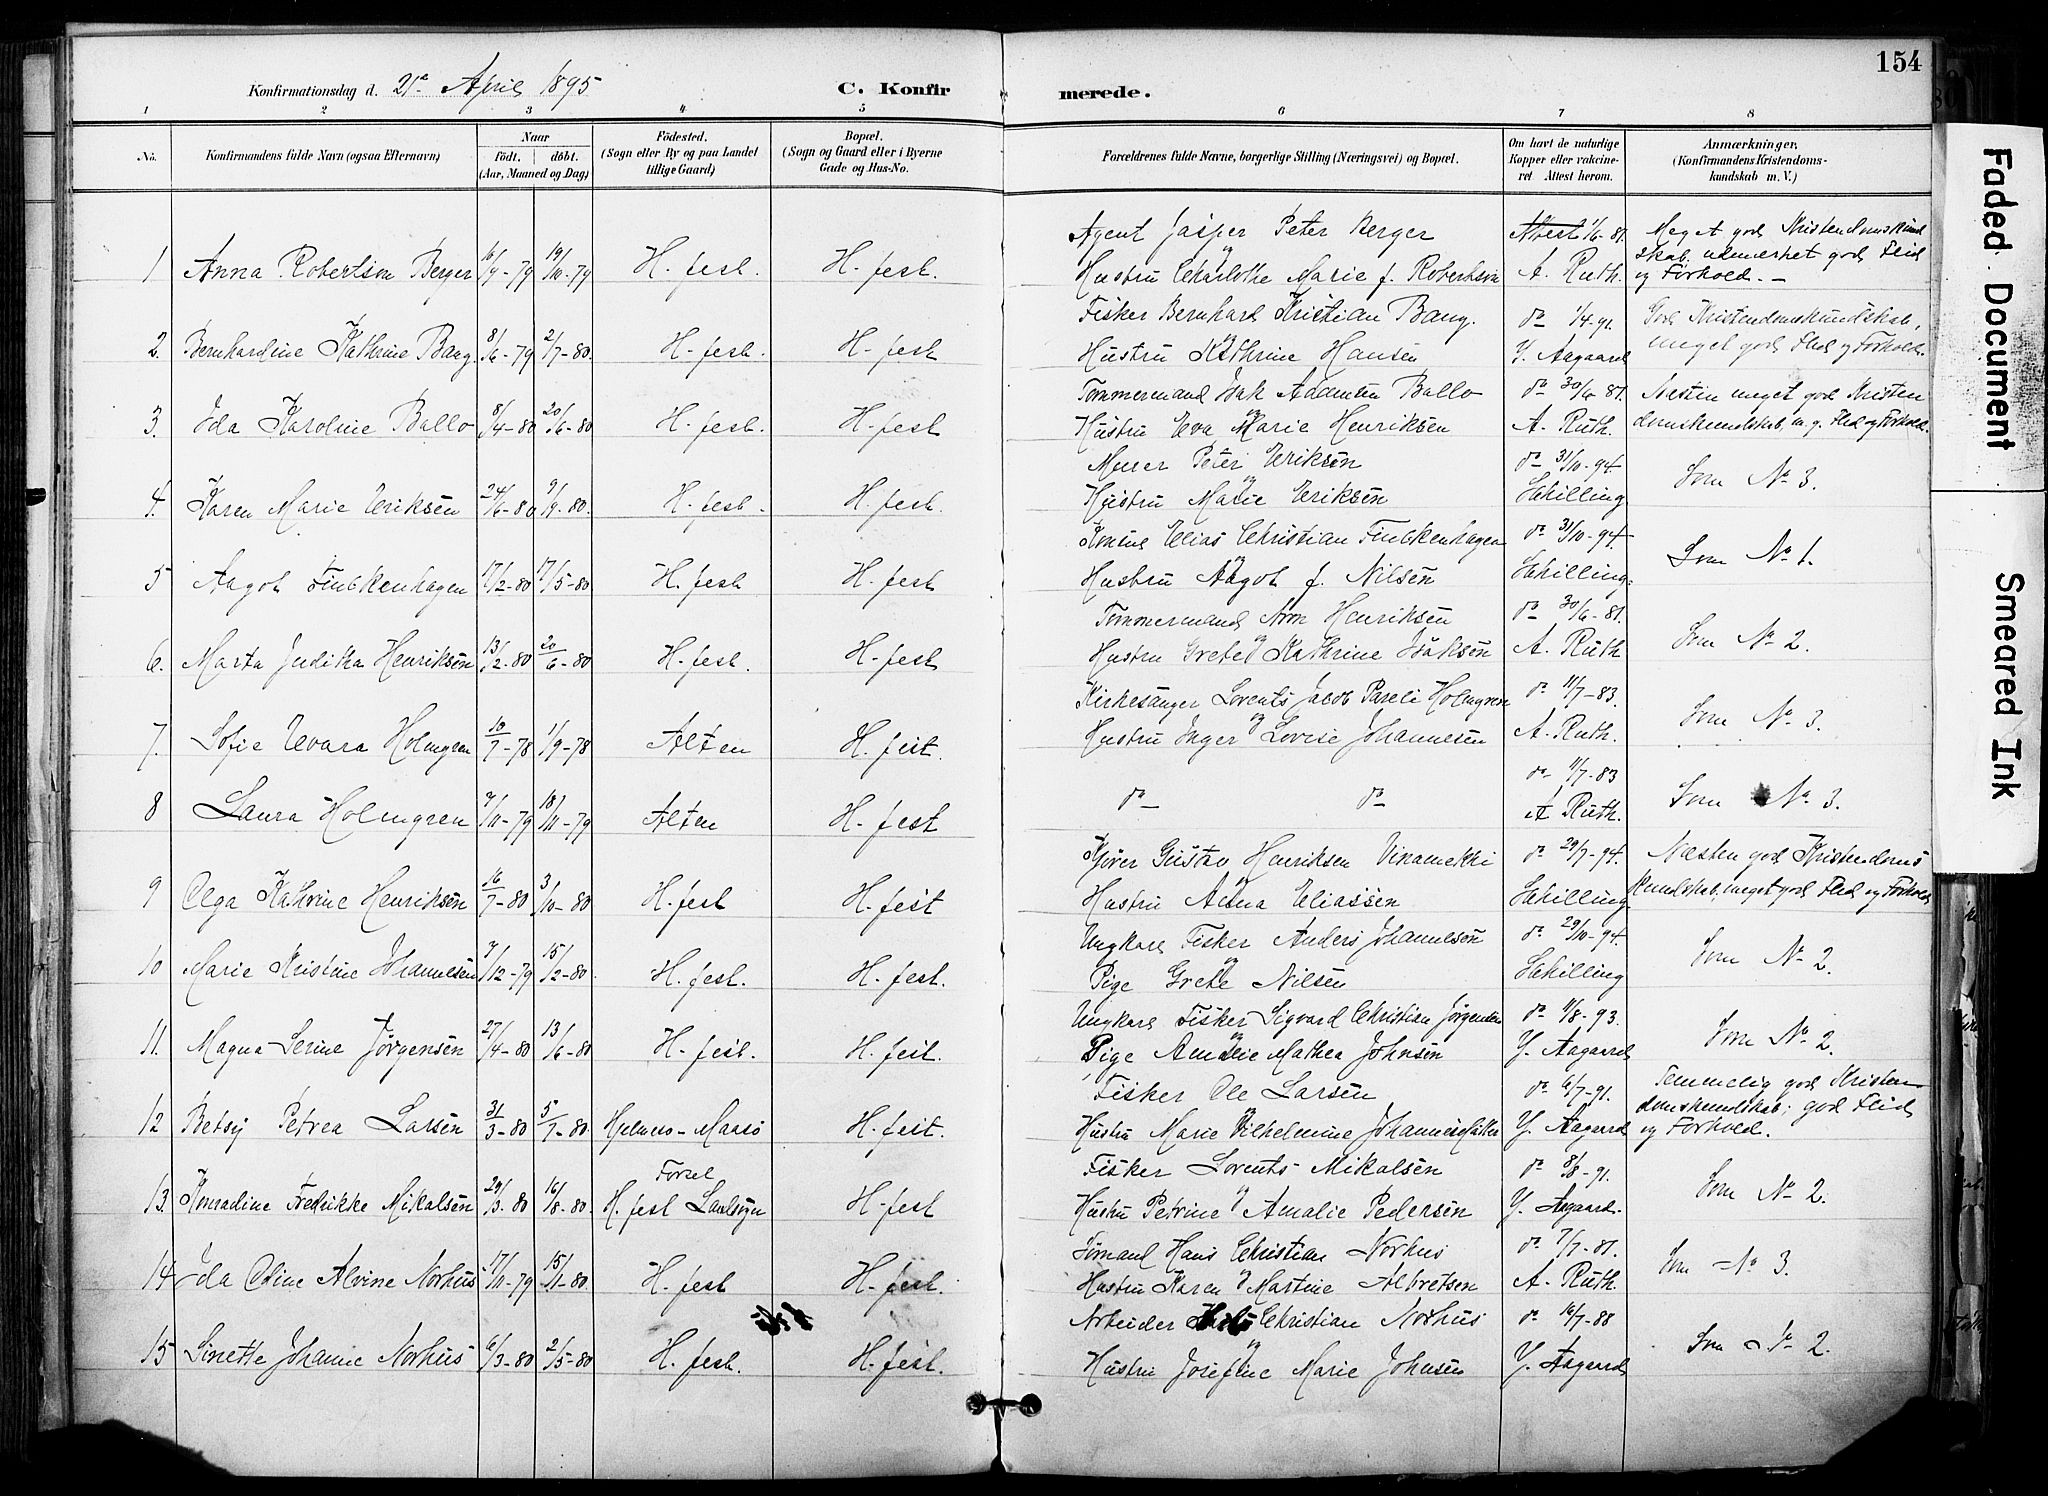 154
Konfirmationsdag d. 21de April 1895
C. Konfirmerede.
1 2 3 4 5 6 7 8
No.
Konfirmandens fulde Navn (ogsaa Efternavn)
Naar
födt. döbt.
(Aar, Maaned og Dag)
Födested.
(Sogn eller By og paa Landet
tillige Gaard)
Bopæl.
(Sogn og Gaard eller i Byerne
Gade og Hus-No.
Forældrenes fulde Navne, borgerlige Stilling (Næringsvei) og Bopæl.
Om havt de naturlige
Kopper eller vakcine-
ret Attest herom.
Anmærkninger,
(Konfirmandens Kristendoms-
kundskab m. V.)
Agent Jasper Peter Berger Attest 1/6-81. Meget god Kristendomskund
1 Anna Robertson Berger 16/9-79 19/10-79 H.fest. H.fest. og Hustru Charlotte Marie f. Robertson A. Ruth. skab, udmerket god Flid
og Forhold.-
Fisker Bernhard Kristian Bang. do 1/4-91. God Kristendomskundskab,
2. Bernhardine Kathrine Bang 8/6-79 2/7-80. H.fest. H.fest og Hustru Kathrine Hansen Y. Aagaard meget god Flid og Forhold.
Tømmermand Isak Adamsen Ballo do 30/6 81. Næsten meget god Kristen
3. Ida Karoline Ballo 8/4-80 20/6-80 H.fest. H.fest og Hustru Eva Marie Henriksen A. Ruth. domskundskab, m. g. Flid og Forhold.
Murer Peter Eriksen do 31/10-94.
4. Karen Marie Eriksen 24/6-80 9/9-80. H.fest. H.fest. og Hustru Marie Eriksen Schilling Som No 3.
Konsul Elias Christian Finckenhagen do 31/10-94.
5 Aagot Finckenhagen 17/2-80 17/5-80 H.fest H.fest. og Hustru Aagot f. Nilsen Schilling. Som No 1.
Tømmermand Aron Henriksen do 30/6-81.
6. Marta Judika Henriksen 13/2-80 20/6-80 H.fest. H.fest og Hustru Grete Kathrine Isaksen A. Ruth Som No 2.
Kirkesanger Lorents Jacob Pareli Holmgren do 11/7-83.
7. Sofie Evara Holmgren 10/7-78 1/9-78 Alten H.fest. og Hustru Inger Lovise Johannesen A. Ruth. Som No 3.
do 11/7-83
8 Laura Holmgren 7/11-79 18/11-79 Alten H.fest do do A Ruth. Som No 3.
Kjører Gustav Henriksen Vinamekki do 29/7-94. Næsten god Kristendoms
9 Olga Kathrine Henriksen 16/7-80 3/10-80 H.fest H.fest og Hustru Anna Eliassen Schilling. kundskab, meget god Flid og Forhold
Ungkarl Fisker Anders Johannesen do 29/10-94.
10 Marie Kristine Johannesen 7/12-79 15/2-80. H.fest. H.fest. og Pige Grete Nilsen Schilling Som No 2.
Ungkarl Fisker Sigvard Christian Jørgensen do 11/8-93.
11. Magna Serine Jørgensen 27/4-80 13/6-80 H.fest. H.fest. og Pige Amalie Mathea Johnsen Y. Aagaard Som No 2.
Fisker Ole Larsen do 6/7-91. Temmelig god Kristen
12 Betsy Petrea Larsen 31/3-80 5/7-80. Hjelmsø-Maasø H.fest. og Hustru Marie Vilhelmine Johannesdatter Y. Aagaard domskundskab; god Flid
og Forhold.
Fisker Lorents Mikalsen do 8/8-91.
13. Konradine Fredrikke Mikalsen 29/3-80 16/8-80. Forsøl H.fest Landsogn H.fest og Hustru Petrine Amalie Pedersen Y. Aagaard. Som No 2.
Sømand Hans Christian Norhus do 7/7-81.
14. Ida Oline Alvine Norhus 17/11-79 15/11-80. H.fest H.fest. og Hustru Karen Martine Albretsen A. Ruth. Som No 3.
Arbeider Christian Norhus do 16/7-88
15 Sinette Johanne Norhus 6/3-80 2/5-80 H.fest. H.fest. og Hustru Josefine Marie Johnsen Y. Aagaard Som No 2.
Faded Document
Smeared Ink